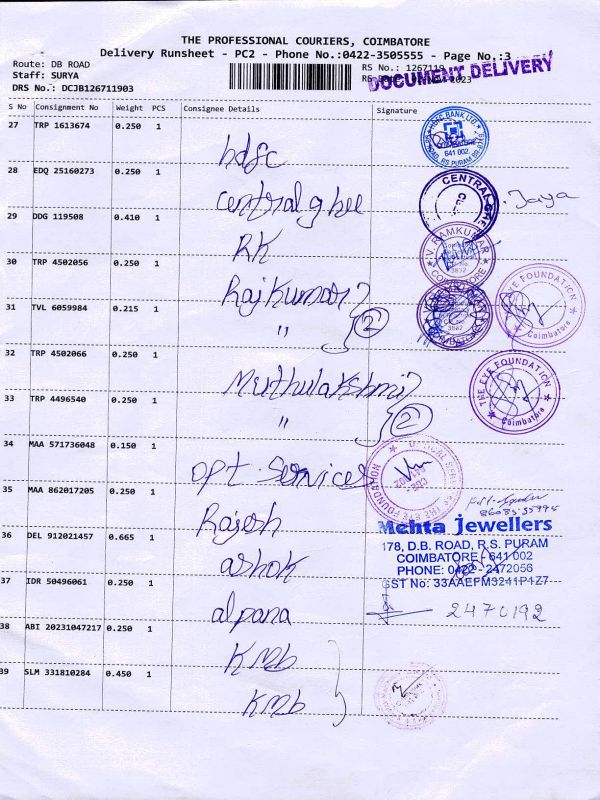 THE PROFESSIONAL COURIERS, COIMBATORE
Delivery Runsheet - PC2 - Phone No.:0422-3505555 - Page No.:3
Route: DB ROAD
RS No.: 1267119
Staff: SURYA
RS Date: Nov 2023
DOCUMENT DELIVERY
DRS No.: DCJB126711903
S No Consignment No Weight PCS Consignee Details Signature
27 TRP 1613674 0.250 1 hdfc
HDFC BANK LTD. 641 002.
28 EDQ 25160273 0.250 1 Central ghee
CENTRAL GHEE Jaya
29 DDG 119508 0.410 1 RK
V. RAMKUMAR
30 TRP 4502056 0.250 1 Rajkumar
THE EYE FOUNDATION Coimbatore
31 TVL 6059984 0.215 1 " 2
32 TRP 4502066 0.250 1 Muthulakshmi
THE EYE FOUNDATION Coimbatore
33 TRP 4496540 0.250 1 " 2
34 MAA 571736048 0.150 1 opt. Services
35 MAA 862017205 0.250 1 Rajesh
36 DEL 912021457 0.665 1 ashok
Mehta Jewellers
178, D.B. ROAD, R.S. PURAM
COIMBATORE - 641 002
PHONE: 0422 - 2472056
GST No: 33AAEFM3241P1Z7
37 IDR 50496061 0.250 1 alpana
2470192
38 ABI 20231047217 0.250 1 KMb
39 SLM 331810284 0.450 1 KMb